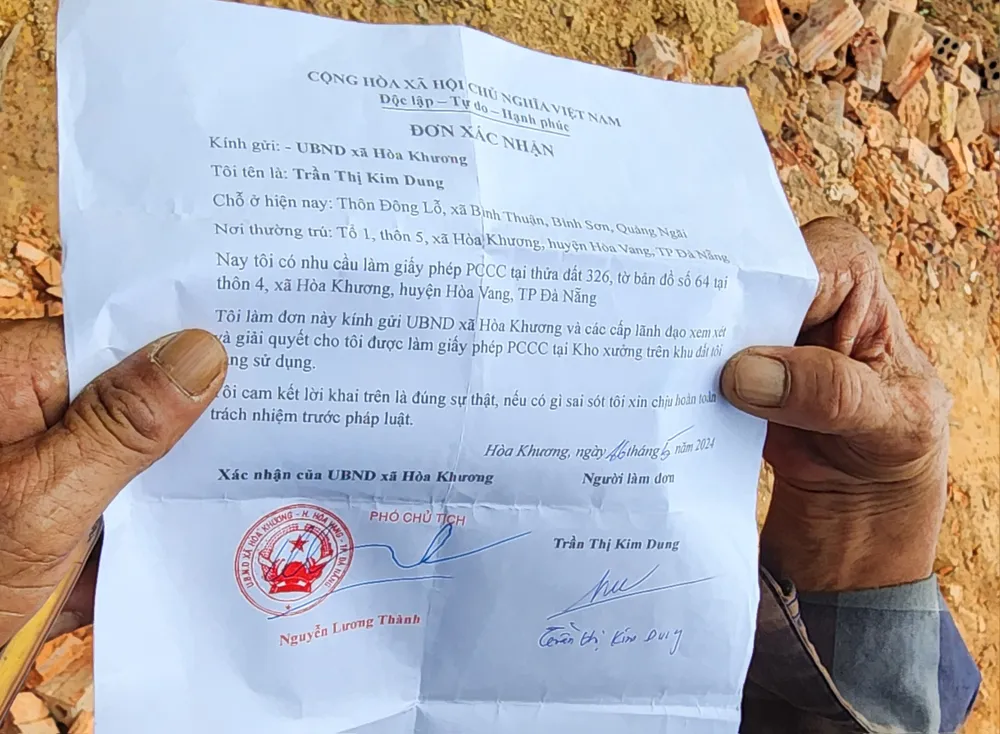 CỘNG HÒA XÃ HỘI CHỦ NGHĨA VIỆT NAM
Độc lập – Tự do – Hạnh phúc
ĐƠN XÁC NHẬN
Kính gửi: - UBND xã Hòa Khương
Tôi tên là: Trần Thị Kim Dung
Chỗ ở hiện nay: Thôn Đông Lỗ, xã Bình Thuận, Bình Sơn, Quảng Ngãi
Nơi thường trú: Tổ 1, thôn 5, xã Hòa Khương, huyện Hòa Vang, TP Đà Nẵng
Nay tôi có nhu cầu làm giấy phép PCCC tại thửa đất 326, tờ bản đồ số 64 tại
thôn 4, xã Hòa Khương, huyện Hòa Vang, TP Đà Nẵng
Tôi làm đơn này kính gửi UBND xã Hòa Khương và các cấp lãnh đạo xem xét
và giải quyết cho tôi được làm giấy phép PCCC tại Kho xưởng trên khu đất tôi
đang sử dụng.
Tôi cam kết lời khai trên là đúng sự thật, nếu có gì sai sót tôi xin chịu hoàn toàn
trách nhiệm trước pháp luật.
Hòa Khương, ngày 16 tháng 5 năm 2024
Xác nhận của UBND xã Hòa Khương
Người làm đơn
PHÓ CHỦ TỊCH
U.B.N.D XÃ HÒA KHƯƠNG - H. HÒA VANG - T.P ĐÀ NẴNG
Nguyễn Lương Thành
Trần Thị Kim Dung
Trần thị Kim Dung